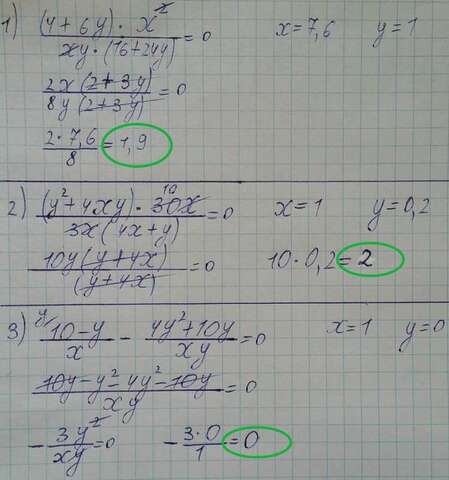 1) (4+6y)·x² / xy·(16+24y) = 0    x=7,6    y=1
2x(2+3y) / 8y(2+3y) = 0
2·7,6 / 8 = 1,9
2) (y²+4xy)·30x / 3x(4x+y) = 0    10    x=1    y=0,2
10y(y+4x) / (y+4x) = 0    10·0,2=2
3) y/ 10-y / x - 4y²+10y / xy = 0    x=1    y=0
10y-y²-4y²-10y / xy = 0
- 3y² / xy = 0    - 3·0 / 1 = 0